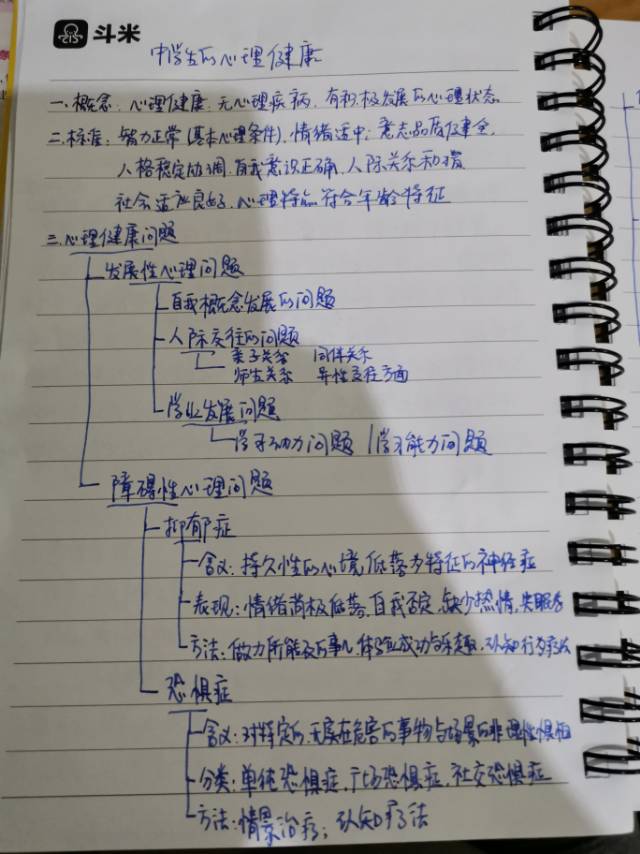 斗米
中学生的心理健康
一.概念:心理健康:无心理疾病,有积极发展的心理状态
二.标准:智力正常(基本心理条件),情绪适中;意志品质健全,
人格稳定协调,自我意识正确,人际关系和谐
社会适应良好,心理特点符合年龄特征
三.心理健康问题
发展性心理问题
自我概念发展的问题
人际交往的问题
亲子关系 同伴关系
师生关系 异性交往方面
学业发展问题
学习动力问题 学习能力问题
障碍性心理问题
抑郁症
含义:持久性的心境低落为特征的神经症
表现:情绪消极低落,自我否定,缺少热情,失眠
方法:做力所能及的事儿,体验成功与乐趣,认知行为疗法
恐惧症
含义:对特定的,无实在危害的事物与场景的非理性惧怕
分类:单纯恐惧症,广场恐惧症,社交恐惧症
方法:情景治疗;认知疗法